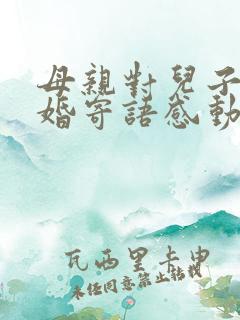 母親對兒子
婚寄語感動
瓦西里卡申
未任同意禁止転載